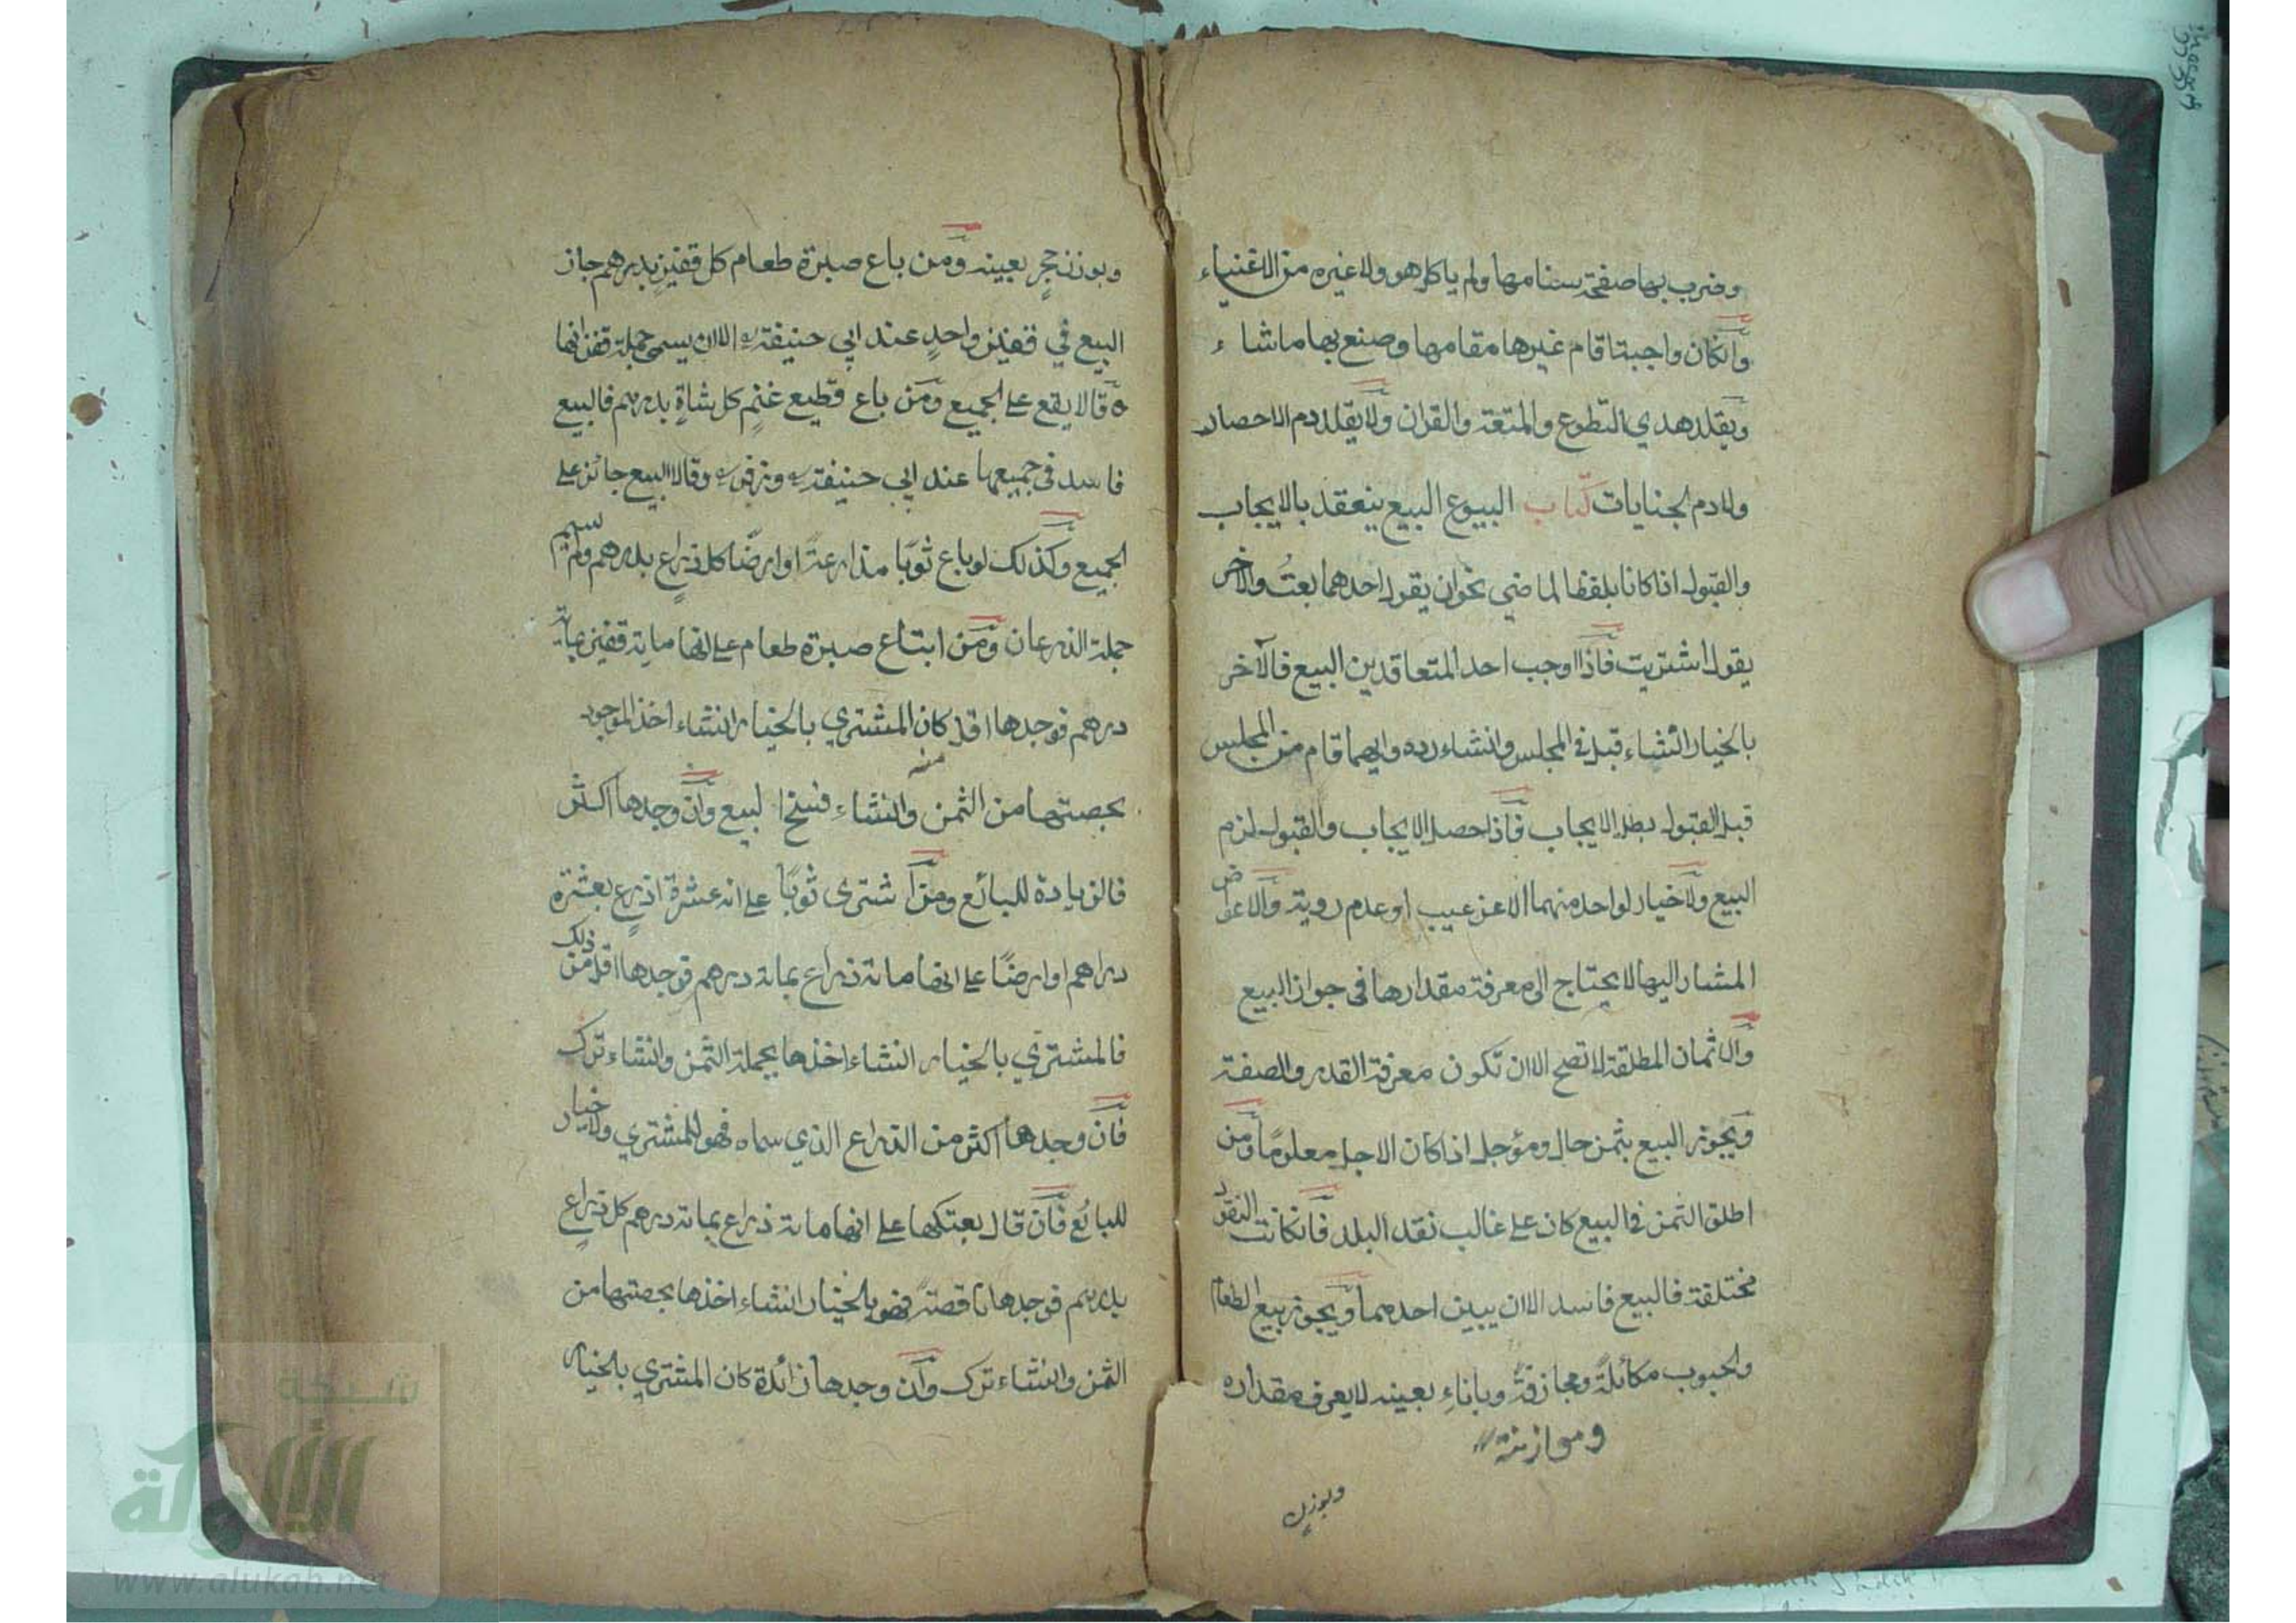 وضرب بها صفحة سنامها ولم ياكل هو ولا غيره من الاغنياء
وانكان واجبتا قام غيرها مقامها وصنع بها ما شاء
ويقلد هدي التطوع والمتعة والقران ولا يقلد دم الاحصار
ولا دم الجنايات كتاب البيوع البيع ينعقد بالايجاب
والقبول اذا كانا بلفظ الماضي نحو ان يقول احدهما بعتُ والآخر
يقول اشتريت فاذا اوجب احد المتعاقدين البيع فالآخر
بالخيار انشاء قبل في المجلس وانشاء رده وايهما قام من المجلس
قبل القبول بطل الايجاب فاذا حصل الايجاب والقبول لزم
البيع ولا خيار لواحد منهما الا عن عيب او عدم روية والاعواض
المشار اليها لا يحتاج الى معرفة مقدارها في جواز البيع
والاثمان المطلقة لا تصح الا ان تكون معرفة القدر والصفة
ويجوز البيع بثمن حال ومؤجل اذا كان الاجل معلومًا ومن
اطلق الثمن في البيع كان على غالب نقد البلد فانكانت النقود
مختلفة فالبيع فاسد الا ان يبين احدهما ويجوز بيع الطعام
والحبوب مكائلةً ومجازفةً وباناءِ بعينه لا يعرف مقداره
وموازنة
وبوزن
وبوزن حجرٍ بعينه ومن باع صبرة طعام كل قفيزٍ بدرهم جاز
البيع في قفيز واحدٍ عند ابي حنيفة الا ان يسمي جملة قفزانها
وقالا يقع على الجميع ومن باع قطيع غنمٍ كل شاةٍ بدرهم فالبيع
فاسد في جميعها عند ابي حنيفة وزفر وقالا البيع جائز على
الجميع وكذلك لو باع ثوبًا مذارعةً او ارضًا كل ذراعٍ بدرهم ولم يسم
جملة الذرعان ومن ابتاع صبرة طعام على انها مائة قفيز بمائة
درهم فوجدها اقل كان المشتري بالخيار انشاء اخذ الموجود
منه
بحصتها من الثمن وانشاء فسخ البيع وان وجدها اكثر
فالزيادة للبائع ومن اشترى ثوبًا على انه عشرة اذرعٍ بعشرة
دراهم او ارضًا على انها مائة ذراع بمائة درهم فوجدها اقل من ذلك
فالمشتري بالخيار انشاء اخذها بجملة الثمن وانشاء ترك
فان وجدها اكثر من الذراع الذي سماه فهو للمشتري ولا خيار
للبائع فان قال بعتكها على انها مائة ذراع بمائة درهم كل ذراعٍ
بدرهم فوجدها ناقصةً فهو بالخيار انشاء اخذها بحصتها من
الثمن وانشاء ترك وان وجدها زائدة كان المشتري بالخيار
شبكة
الألوكة
www.alukah.net